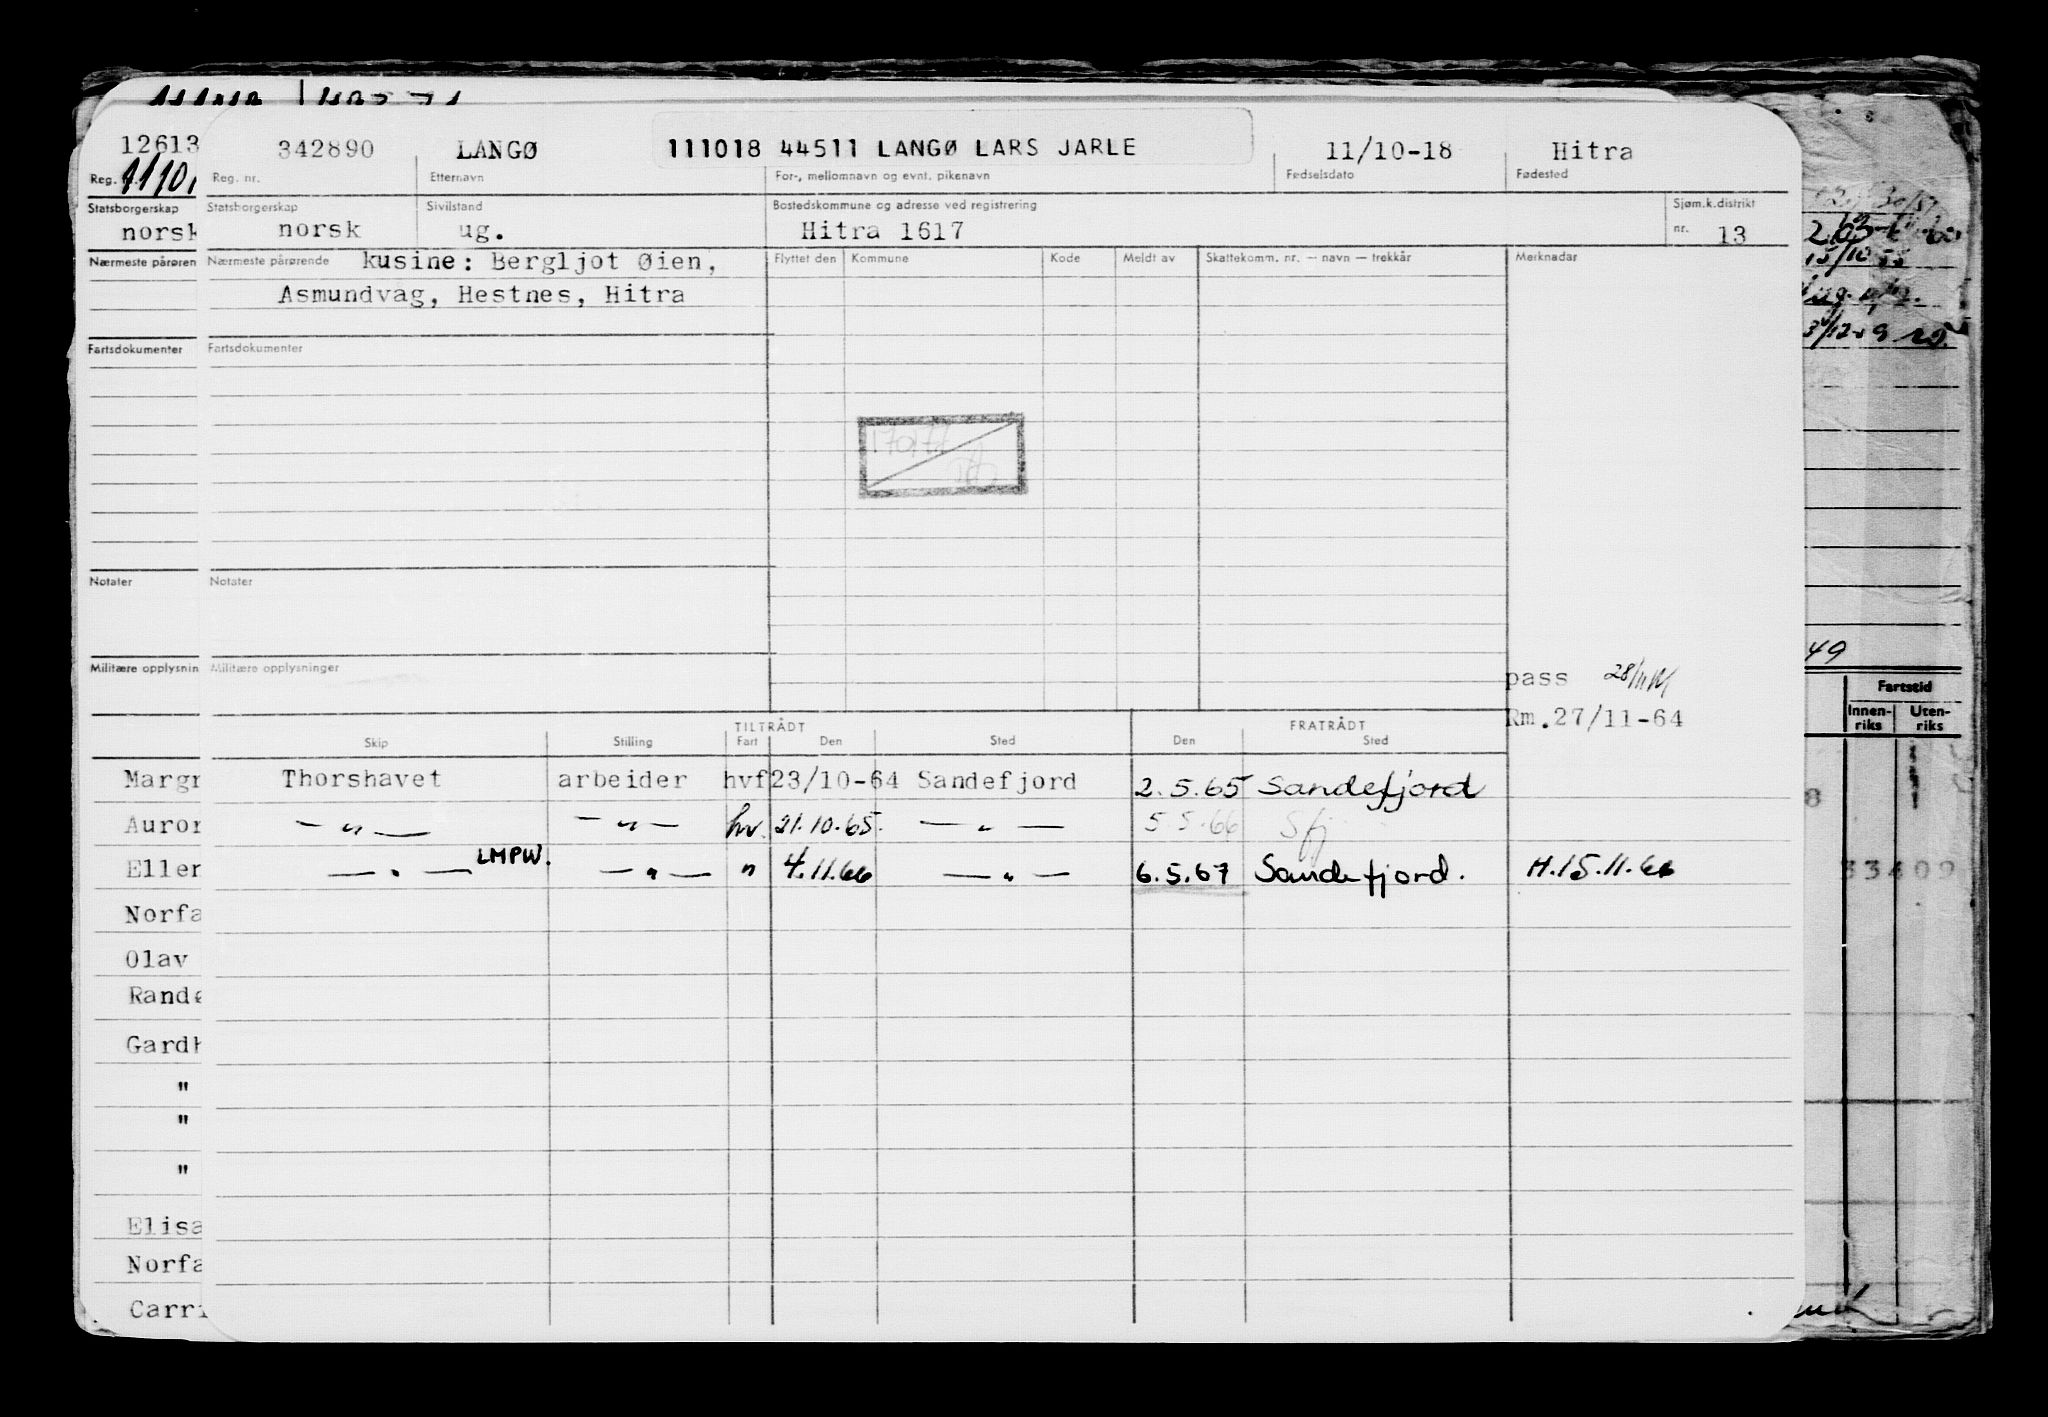 12613 342890 LANGØ 111018 44511 LANGØ LARS JARLE 11/10-18 Hitra
Reg. Reg. nr. Etternavn For-, mellomnavn og evnt. pikenavn Fødselsdato Fødested
Statsborgerskap Statsborgerskap Sivilstand Bostedskommune og adresse ved registrering Sjøm.k.distrikt
norsk norsk ug. Hitra 1617 nr. 13
Nærmeste pårøren Nærmeste pårørende kusine: Bergljot Øien, Flyttet den Kommune Kode Meldt av Skattekomm. nr. — navn — trekkår Merknadar
Asmundvåg, Hestnes, Hitra
Fartsdokumenter Fartsdokumenter
Notater Notater
49
Militære opplysnin Militære opplysninger
pass
Rm.27/11-64
Fartstid
Innen-riks Uten-riks
TILTRÅDT FRATRÅDT
Skip Stilling Fart Den Sted Den Sted
Margr Thorshavet arbeider hvf 23/10-64 Sandefjord 2.5.65 Sandefjord
Auror — " — — " — hv. 21.10.65. — " — 5.5.66 Sfj
Eller — " — LMPW. — " — " 4.11.66 — " — 6.5.67 Sandefjord. H.15.11.66
33402
Norfa
Olav
Randø
Gardh
"
"
"
Elisa
Norfa
Carri